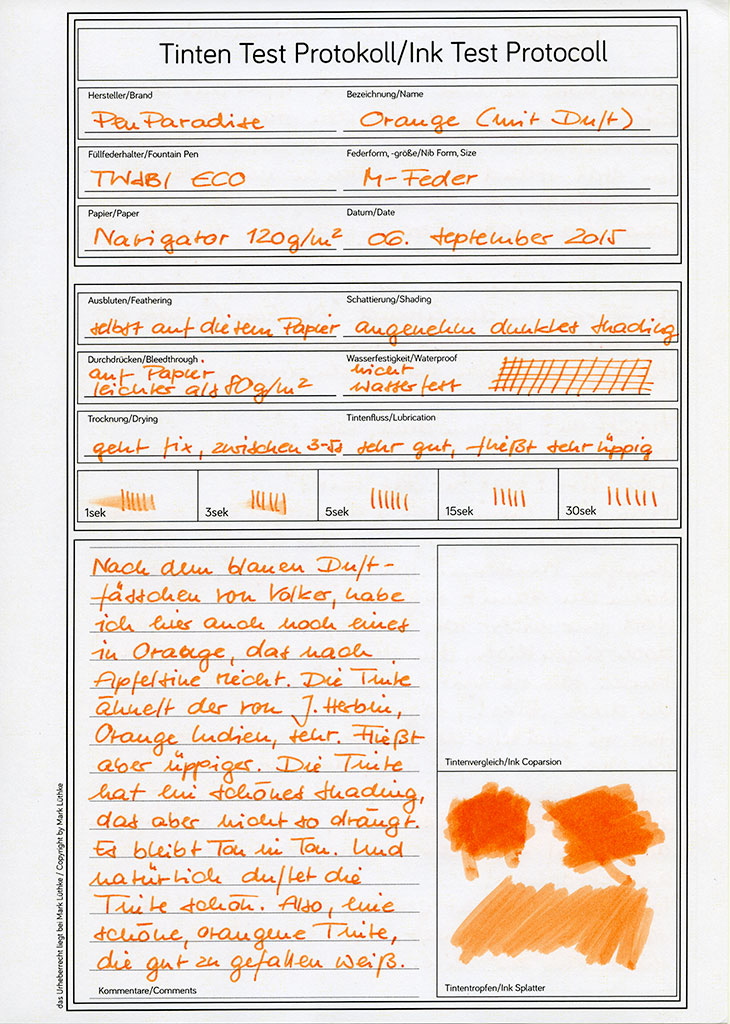 Tinten Test Protokoll/Ink Test Protocoll
Hersteller/Brand
PenParadise
Bezeichnung/Name
Orange (mit Duft)
Füllfederhalter/Fountain Pen
TWSBI ECO
Federform, -größe/Nib Form, Size
M-Feder
Papier/Paper
Navigator 120g/m²
Datum/Date
06. September 2015
Ausbluten/Feathering
selbst auf diesem Papier
Schattierung/Shading
angenehm dunkles Shading
Durchdrücken/Bleedthrough
auf Papier
leichter als 80g/m²
Wasserfestigkeit/Waterproof
nicht
wasserfest
Trocknung/Drying
geht fix, zwischen 3-5s
Tintenfluss/Lubrication
sehr gut, fließt sehr üppig
1sek
3sek
5sek
15sek
30sek
Nach dem blauen Duft-
fässchen von Volker, habe
ich hier auch noch eines
in Orange, das nach
Apfelsine riecht. Die Tinte
ähnelt der von J. Herbin,
Orange Indien, sehr. Fließt
aber üppiger. Die Tinte
hat ein schönes Shading,
das aber nicht so drängt.
Es bleibt Ton in Ton. Und
natürlich duftet die
Tinte schön. Also, eine
schöne, orangene Tinte,
die gut zu gefallen weiß.
Kommentare/Comments
Tintenvergleich/Ink Coparsion
Tintentropfen/Ink Splatter
das Urheberrecht liegt bei Mark Lüthke / Copyright by Mark Lüthke